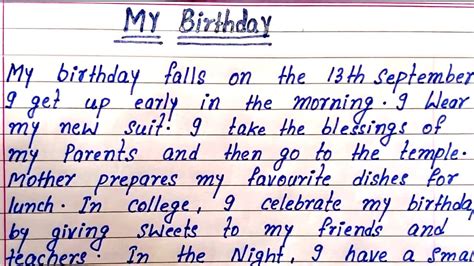 My Birthday
My birthday falls on the 13th September
I get up early in the morning. I Wear
my new suit. I take the blessings of
my Parents and then go to the temple.
Mother prepares my favourite dishes for
lunch. In college, I celebrate my birthda
by giving sweets to my friends and
teachers. In the Night, I have a sma